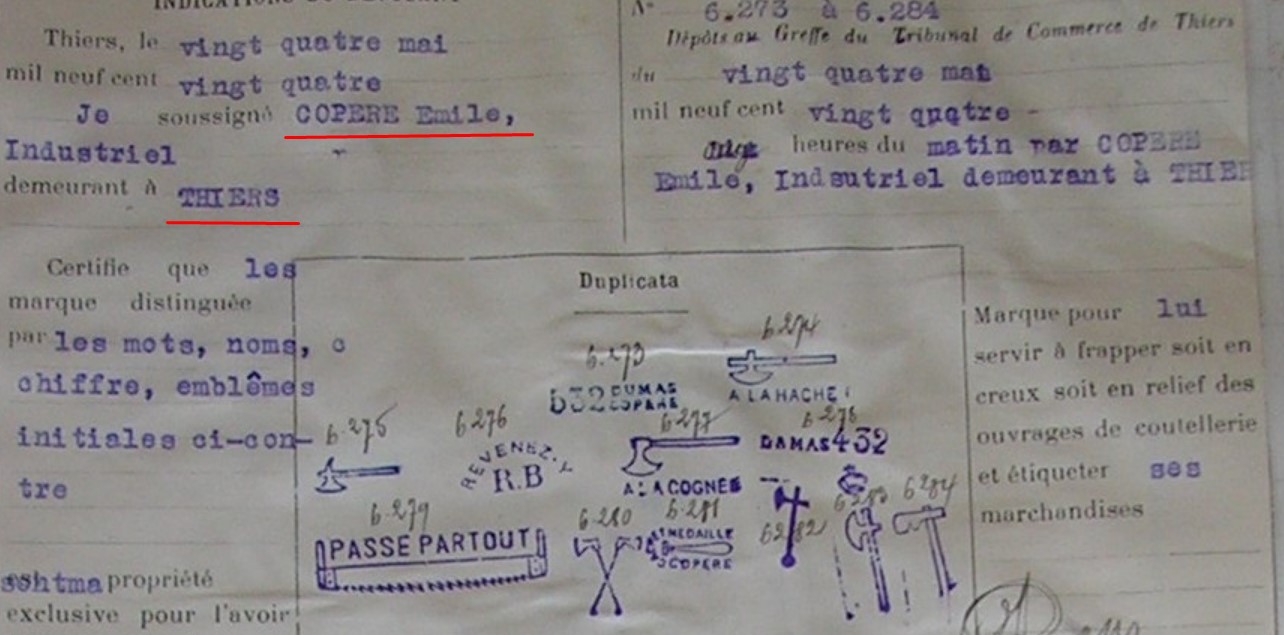 Thiers, le vingt quatre mai
mil neuf cent vingt quatre
Je soussigné COPERE Emile,
Industriel
demeurant à THIERS
N° 6.273 à 6.284
Dépôts au Greffe du Tribunal de Commerce de Thiers
du vingt quatre mai
mil neuf cent vingt quatre -
heures du matin par COPERE
Emile, Indsutriel demeurant à THIER
Certifie que les
marque distinguée
par les mots, noms, c
chiffre, emblêmes
initiales ci-con-
tre
propriété
exclusive pour l'avoir
Duplicata
6.273
6.274
532 DUMAS
COPERE
A LA HACHE
6.275
6.276
6.277
6.278
REVENEZ-Y
R.B
A LA COGNEE
DAMAS 432
6.279
6.280
6.281
6282
6283
6284
PASSE PARTOUT
MEDAILLE
COPERE
Marque pour lui
servir à frapper soit en
creux soit en relief des
ouvrages de coutellerie
et étiqueter ses
marchandises